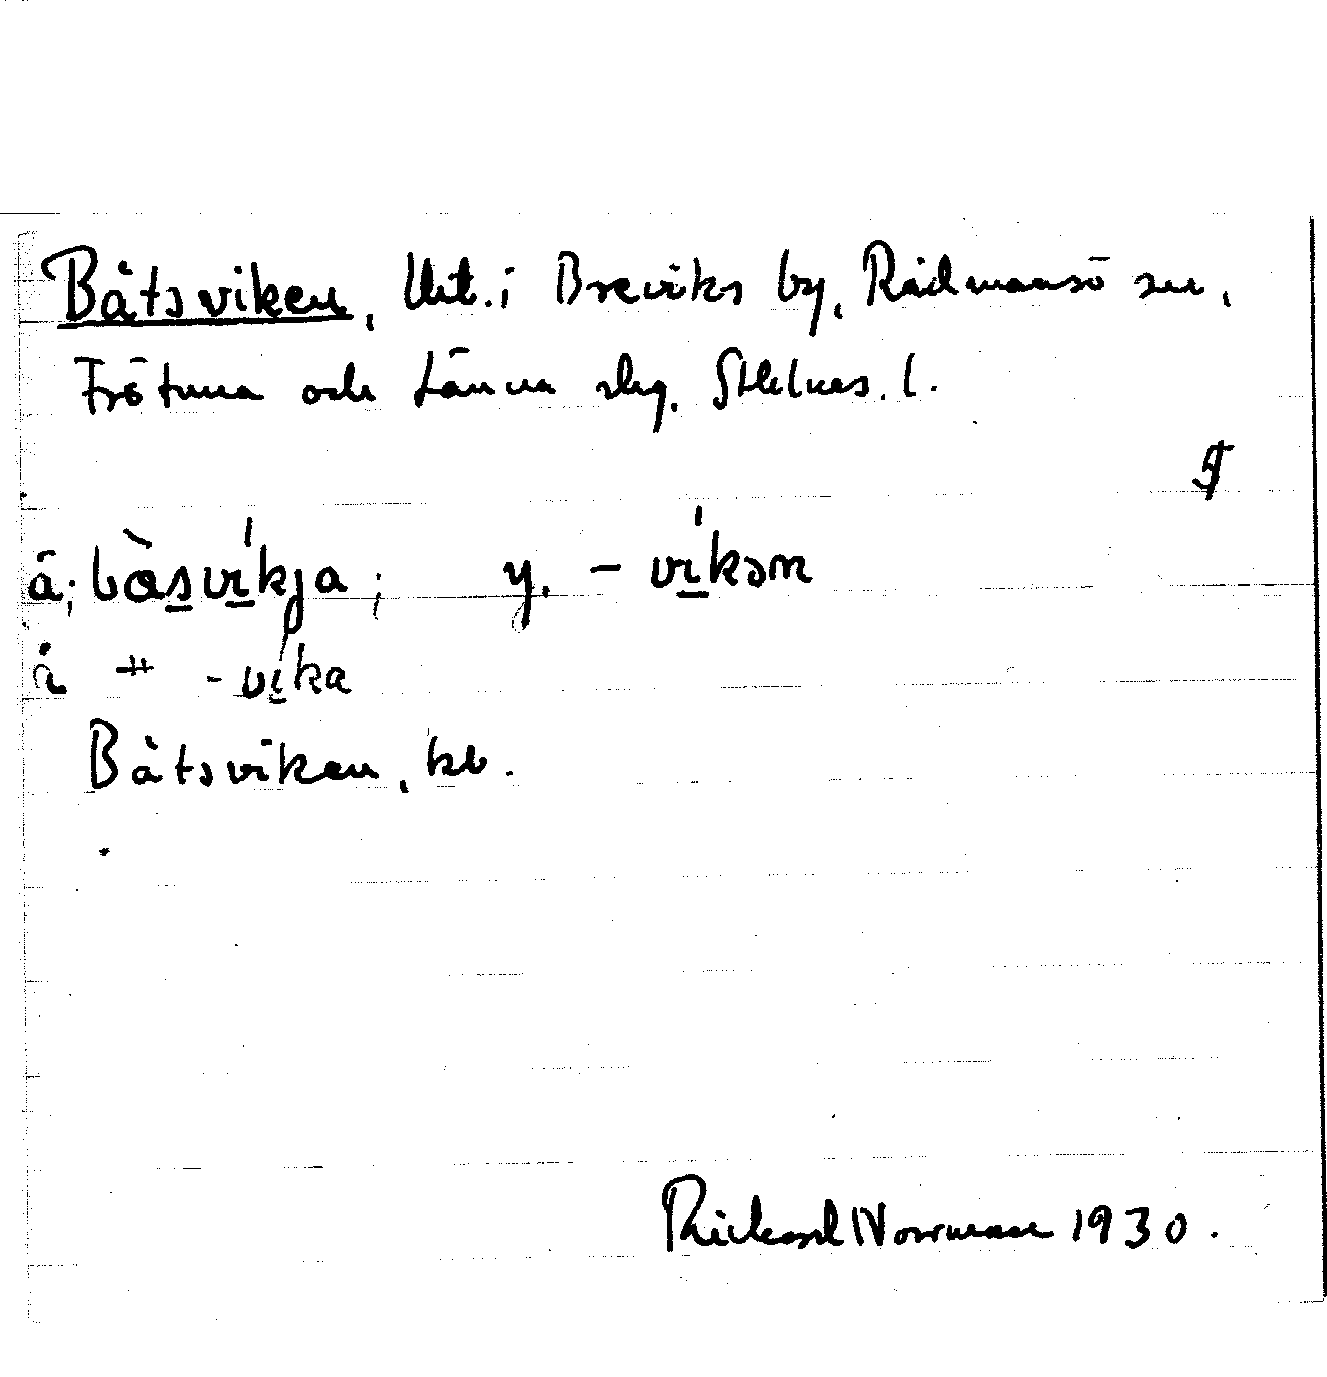 Båtsviken, Utt. i Breviks by, Rådmansö sn,
Frötuna och Länna slg. Sthlms. l.
ä; bɑ̀svíkja; y. - víkən
å -víka
Båtsviken, kb.
Rickard Norrman 1930.